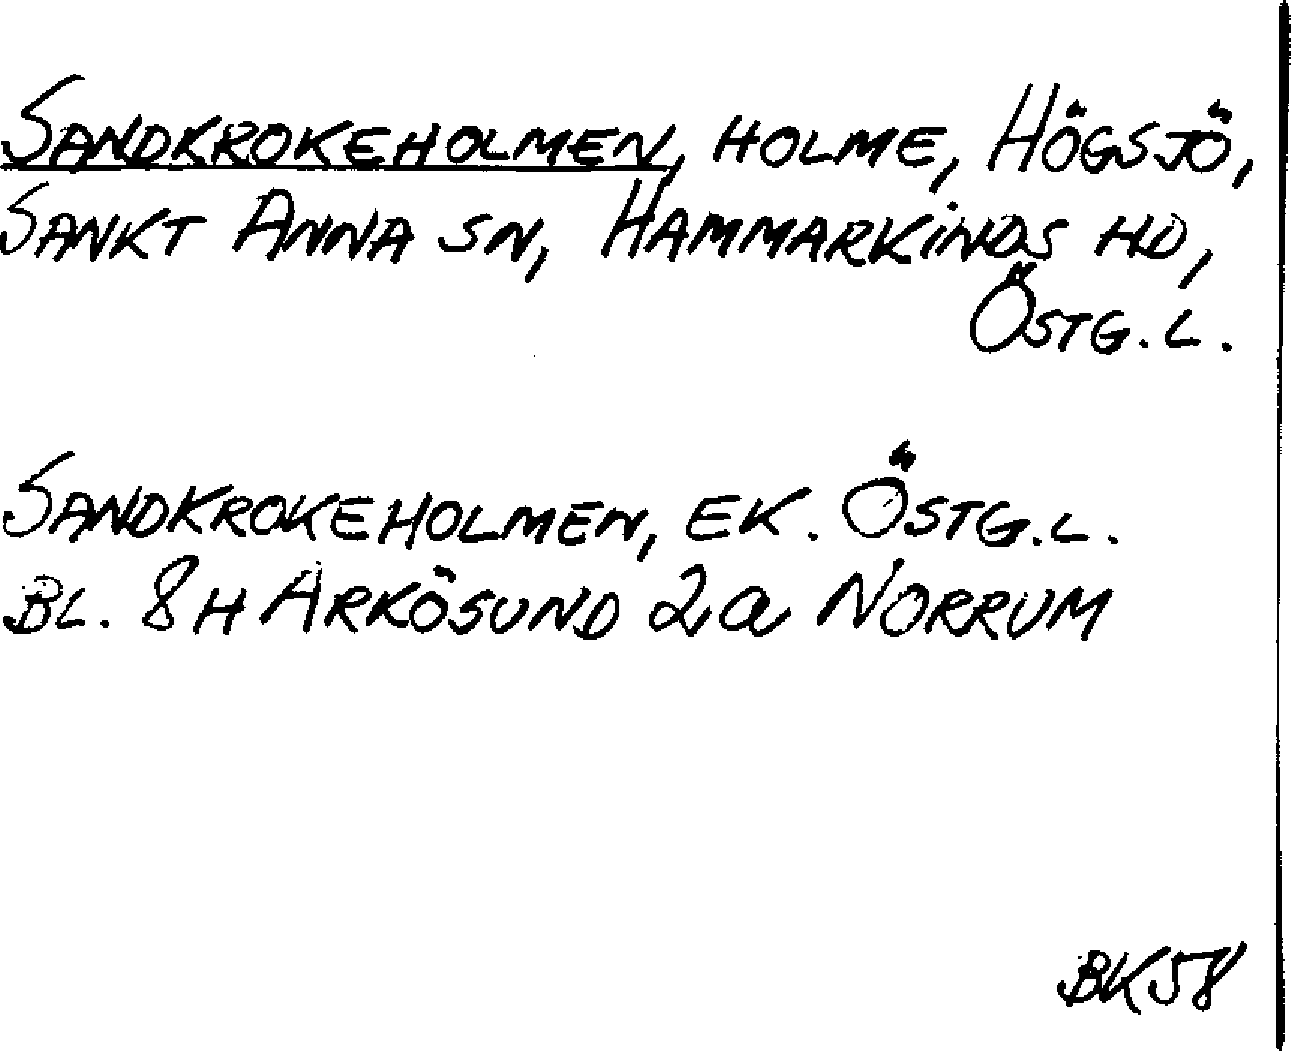 SANDKROKEHOLMEN, HOLME, HÖGSJÖ,
SANKT ANNA SN, HAMMARKINDS HD,
ÖSTG. L.
SANDKROKEHOLMEN, EK. ÖSTG. L.
BL. 8H ARKÖSUND 2a NORRUM
BK58